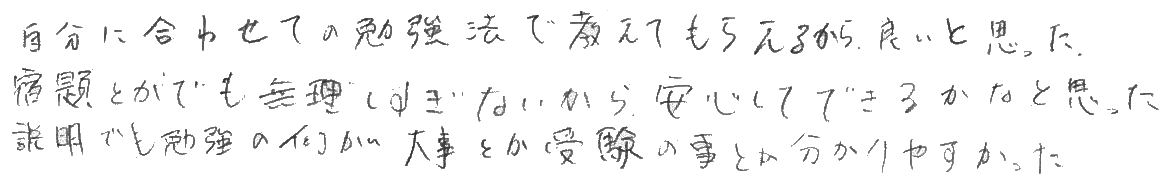 自分に合わせての勉強法で教えてもらえるから、良いと思った。
宿題とかでも無理しすぎないから、安心してできるかなと思った
説明でも勉強の何が大事とか受験の事とか分かりやすかった